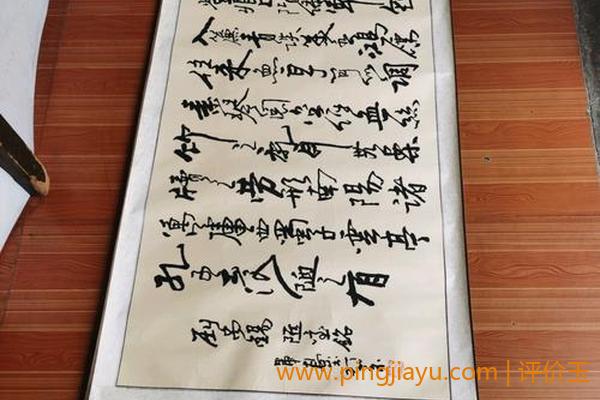 入簾青谈笑有鴻儒
往来無白丁可以調
素琴閱金经無絲
竹之乱耳無案
牘之劳形南陽诸
葛廬西蜀子雲亭
孔子云何陋之有
刘禹锡陋室铭
www.pingjiayu.com | 评价玉